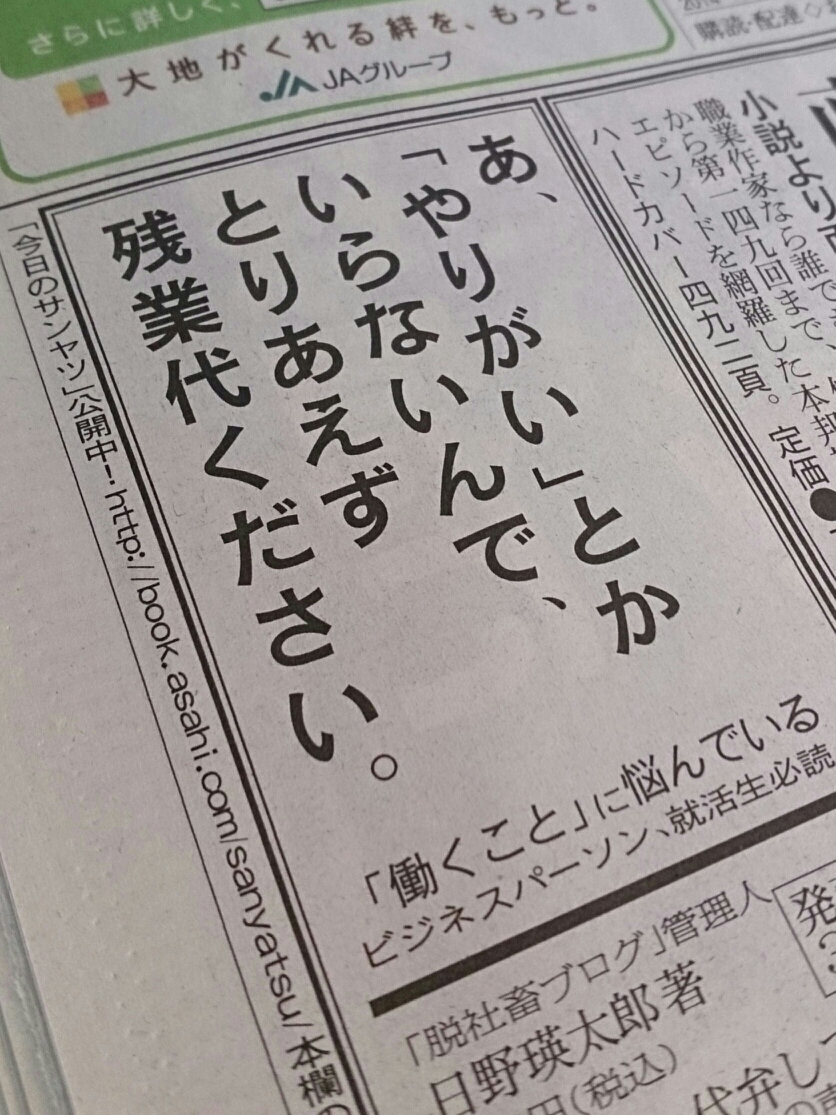 さらに詳しく、
大地がくれる絆を、もっと。
JAグループ
購読・配達
小説より
職業作家なら誰で
から第一四九回まで、
エピソードを網羅した本邦
ハードカバー四九二頁。定価
あ、
「やりがい」とか
いらないんで、
とりあえず
残業代ください。
「働くこと」に悩んでいる
ビジネスパーソン、就活生必読
「脱社畜ブログ」管理人
日野瑛太郎 著
円(税込)
代弁し
「今日のサンヤツ」公開中!http://book.asahi.com/sanyatsu/本欄の